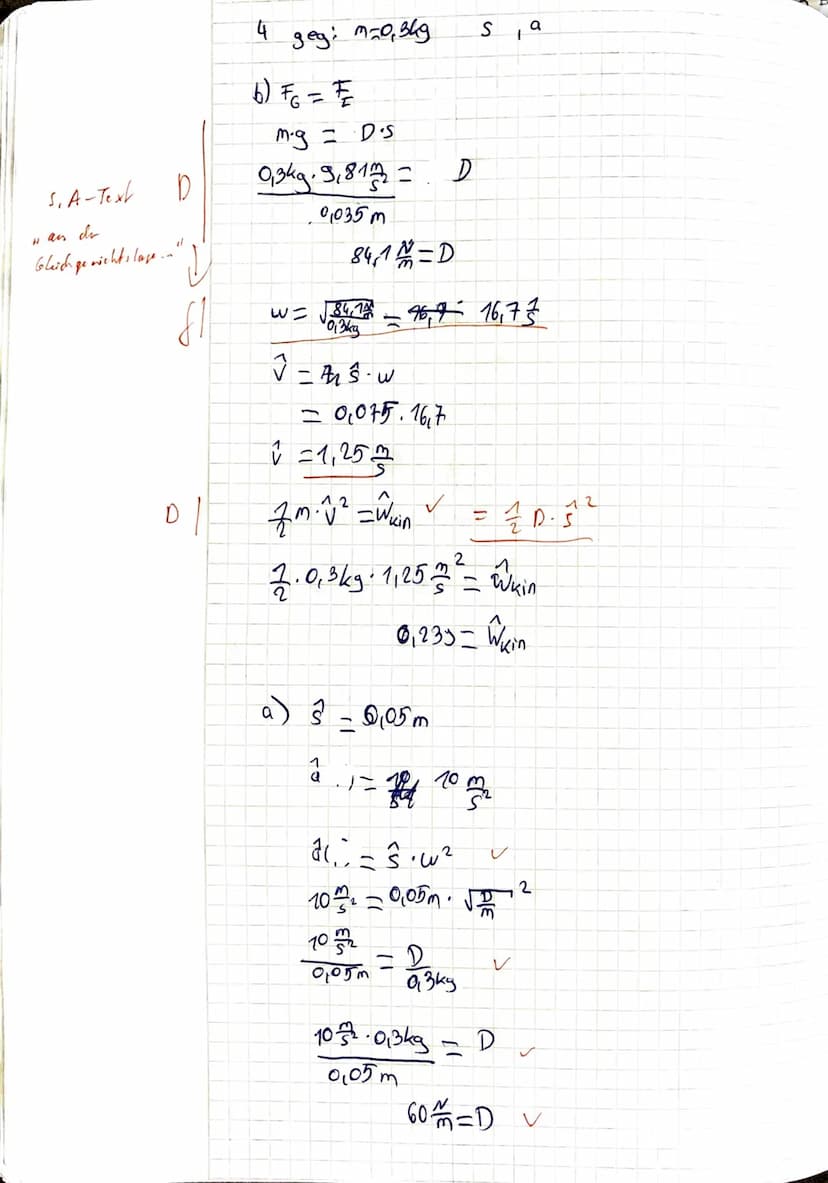 4 geg: m=0,3kg s , a
b) F_G = F_I
m·g = D·s
0,3kg · 9,81 m/s² = D
0,035 m
S, A-Text D
"an der
Gleichgewichtslage..."
84,1 N/m = D
f|
w = √84,1 N/m / 0,3kg = 16,7 1/s
v̂ = ŝ · w
= 0,075 · 16,7
v̂ = 1,25 m/s
D |
1/2 m · v̂² = Ŵkin ✓ = 1/2 D · ŝ²
1/2 · 0,3kg · 1,25 m/s ² = Ŵkin
0,23J = Ŵkin
a) ŝ = 0,05m
â = 10 m/s²
= ŝ · w² ✓
10 m/s² = 0,05m · √D/m ²
10 m/s² / 0,05m = D / 0,3kg ✓
10 m/s² · 0,3kg / 0,05m = D ✓
60 N/m = D ✓